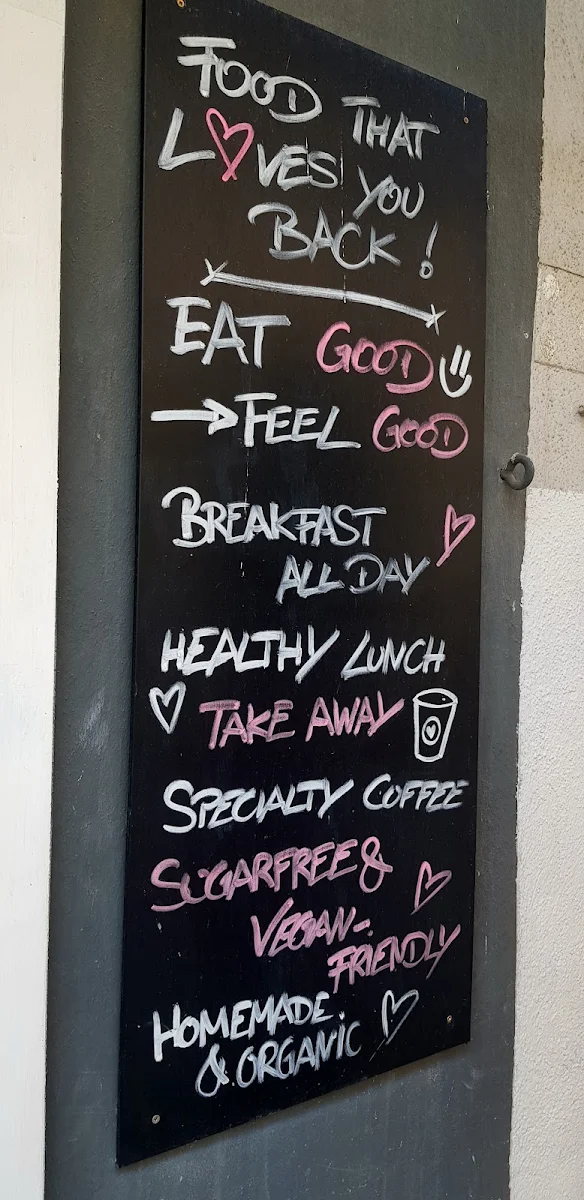 FOOD THAT
L♡VES YOU
BACK!
EAT GOOD
→ FEEL GOOD
BREAKFAST
ALL DAY
HEALTHY LUNCH
TAKE AWAY
SPECIALTY COFFEE
SUGARFREE &
VEGAN-
FRIENDLY
HOMEMADE
& ORGANIC